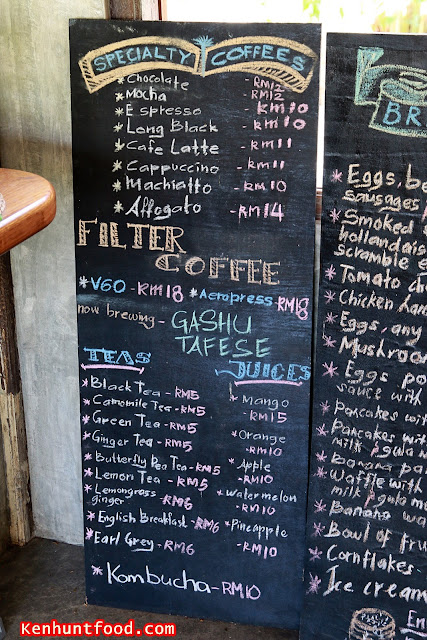 SPECIALTY COFFEES
* Chocolate - RM12
* Mocha - RM12
* Espresso - RM10
* Long Black - RM10
* Cafe Latte - RM11
* Cappuccino - RM11
* Machiatto - RM10
* Affogato - RM14
FILTER
COFFEE
* V60 - RM18 * Aeropress - RM18
now brewing - GASHU
TAFESE
TEAS
* Black Tea - RM5
* Camomile Tea - RM5
* Green Tea - RM5
* Ginger Tea - RM5
* Butterfly Pea Tea - RM5
* Lemon Tea - RM5
* Lemongrass
ginger - RM6
* English Breakfast - RM6
* Earl Grey - RM6
JUICES
* Mango
- RM15
* Orange
- RM10
* Apple
- RM10
* Watermelon
- RM10
* Pineapple
- RM10
* Kombucha - RM10
BR
* Eggs, be
sausages
* Smoked
hollandais
scramble e
* Tomato ch
* Chicken ham
* Eggs, any
* Mushroom
* Eggs po
sauce with
* Pancakes with
* Pancakes with
milk & gula m
* Banana pa
* Waffle with
milk, gula me
* Banana wa
* Bowl of fru
* Cornflakes
* Ice cream
En
Kenhuntfood.com